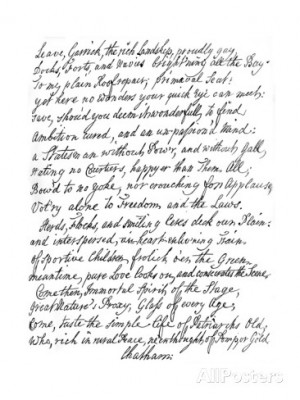 Leave, Garrick, the rich Landskip, proudly gay,
Docks, Forts, and Navies bright'ning all the Bay:
To my plain Roof repair, primæval Seat!
yet here no wonders your quick Eye can meet;
save, should you deem it wonderful, to find
Ambition cured, and an unpassion'd Mind:
a Statesman without Pow'r, and without Gall,
hating no Courtiers, happyer than Them All;
Bow'd to no yoke, nor crouching for Applause,
Vot'ry alone to Freedom and the Laws.
Herds, Flocks, and smiling Ceres deck our Plain:
and interspersed, an heart-enlivening Train
of sportive Children, frolick o'er the Green,
meantime, pure Love looks on, and consecrates the Scene.
Come then, Immortal Spirit of the Stage,
Great Nature's Proxy, Glass of every Age,
Come, taste the simple Life of Patriarchs Old,
who, rich in rural Peace, ne'er thought of Pomp or Gold
Chatham:
AllPosters